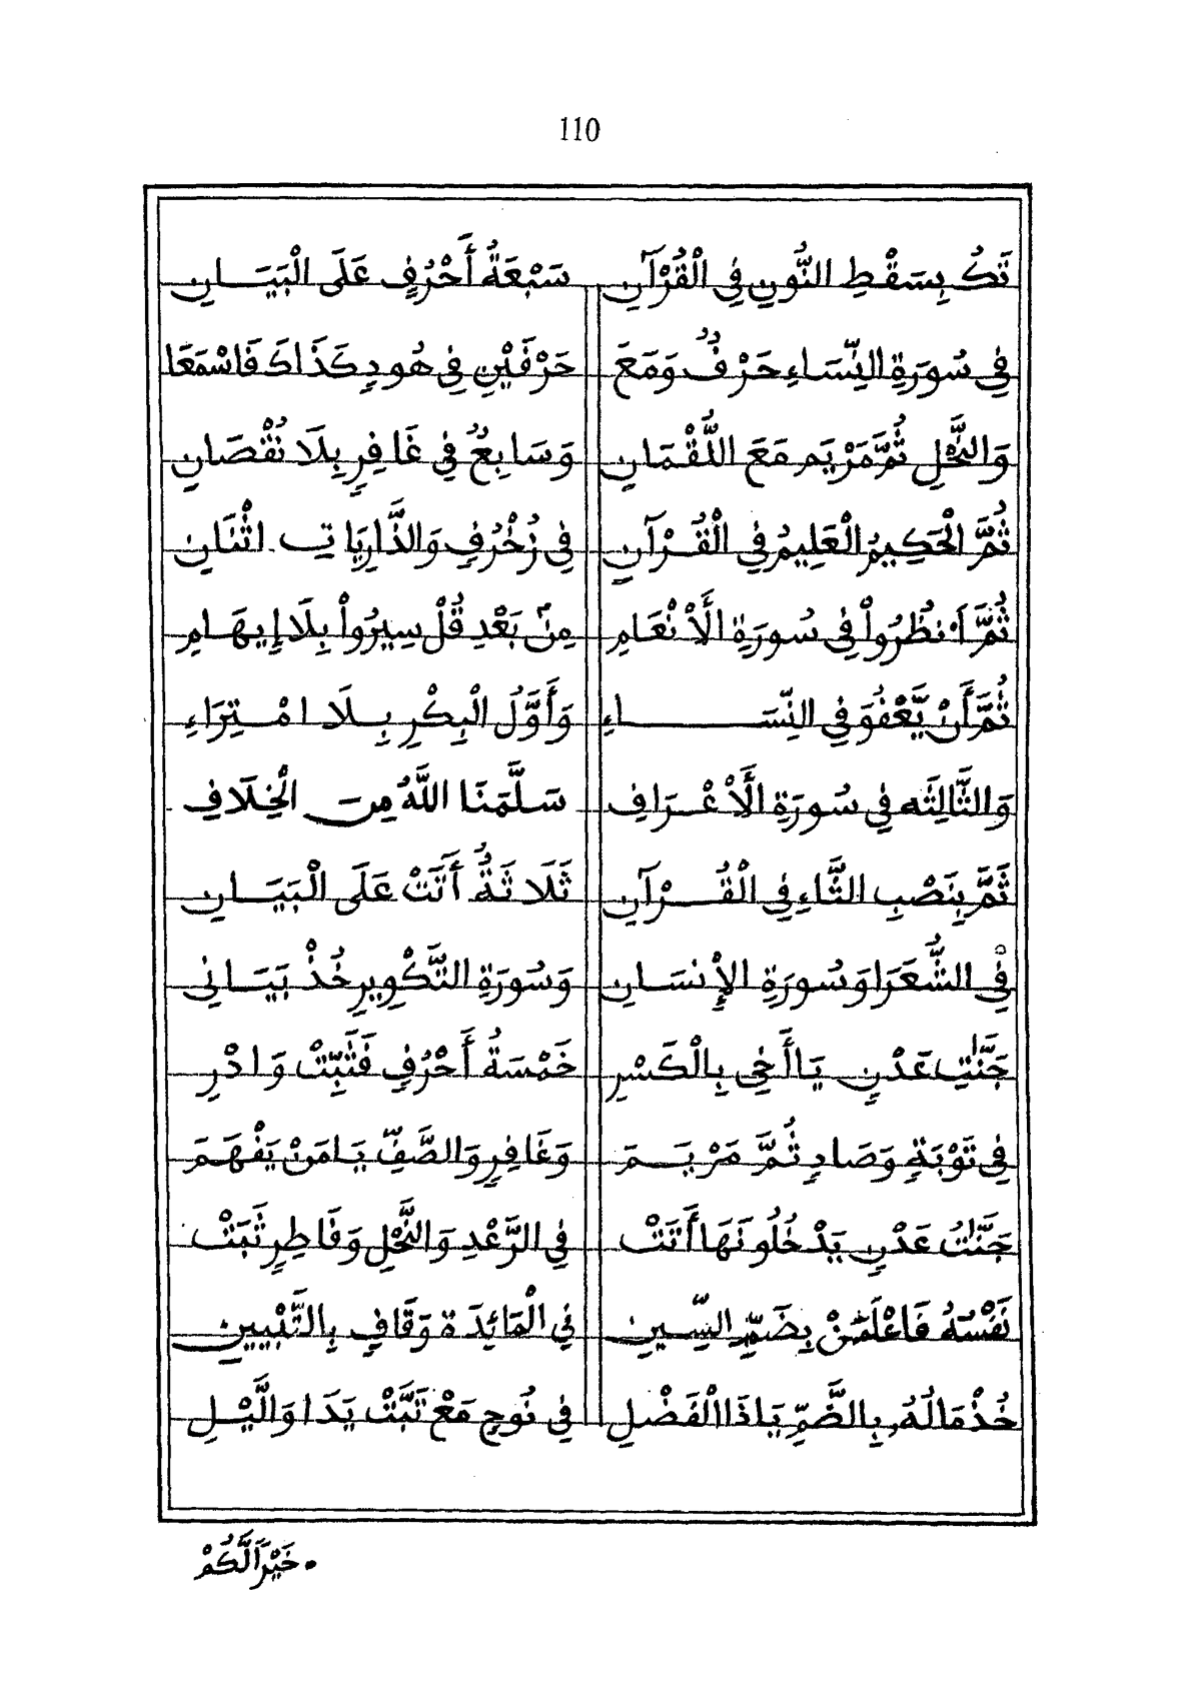 110
تَكُ بِسَقْطِ النُّونِ فِي الْقُرْآنِ سَبْعَةُ أَحْرُفٍ عَلَى الْبَيَـانِ
فِي سُورَةِ النِّسَاءِ حَرْفٌ وَمَعَ حَرْفَيْنِ فِي هُودٍ كَذَاكَ فَاسْمَعَا
وَالنَّحْلِ ثُمَّ مَرْيَم مَعَ اللُّقْمَانِ وَسَابِعٌ فِي غَافِرٍ بِلَا نُقْصَانِ
ثُمَّ الْحَكِيمُ الْعَلِيمُ فِي الْقُـرْآنِ فِي زُخْرُفٍ وَالذَّارِيَاتِ اثْنَانِ
ثُمَّ اَنْظُرُواْ فِي سُورَةِ الْأَنْعَامِ مِنْ بَعْدِ قُلْ سِيرُواْ بِلَا إِيهَـامِ
ثُمَّ أَنْ يَّعْفُوَ فِي النِّسَـــاءِ وَأَوَّلُ الْبِكْرِ بِـلَا امْـتِرَاءِ
وَالثَّالِثَه فِي سُورَةِ الْأَعْـرَافِ سَلَّمَنَا اللَّهُ مِنَ الْخِلَافِ
ثَمَّ بِنَصْبِ الثَّاءِ فِي الْقُـرْآنِ ثَلَاثَةٌ أَتَتْ عَلَى الْبَيَـانِ
فِي الشُّعَرَا وَسُورَةِ الْإِنسَـانِ وَسُورَةِ التَّكْوِيرِ خُذْ بَيَـانِي
جَنَّٰتِ عَدْنٍ يَا أَخِي بِالْكَسْرِ خَمْسَةُ أَحْرُفٍ فَثَبِّتْ وَادْرِ
فِي تَوْبَةٍ وَصَادٍ ثُمَّ مَرْيَـمَ وَغَافِرٍ وَالصَّفِّ يَـامَنْ يَفْهَـمَ
جَنَّٰتُ عَدْنٍ يَدْخُلُونَهَا أَتَتْ فِي الرَّعْدِ وَالنَّحْلِ وَفَاطِرٍ ثَبَتْ
نَفْسُهُ فَاعْلَمَنْ بِضَمِّ السِّـينِ فِي الْمَائِدَة وَقَافٍ بِالتَّبْيِينِ
خُذْ مَالُهُ بِالضَّمِّ يَاذَا الْفَضْلِ فِي نُوحٍ مَعْ تَبَّتْ يَدَا وَالَّيْـلِ
خَيْرًا لَّكُمْ